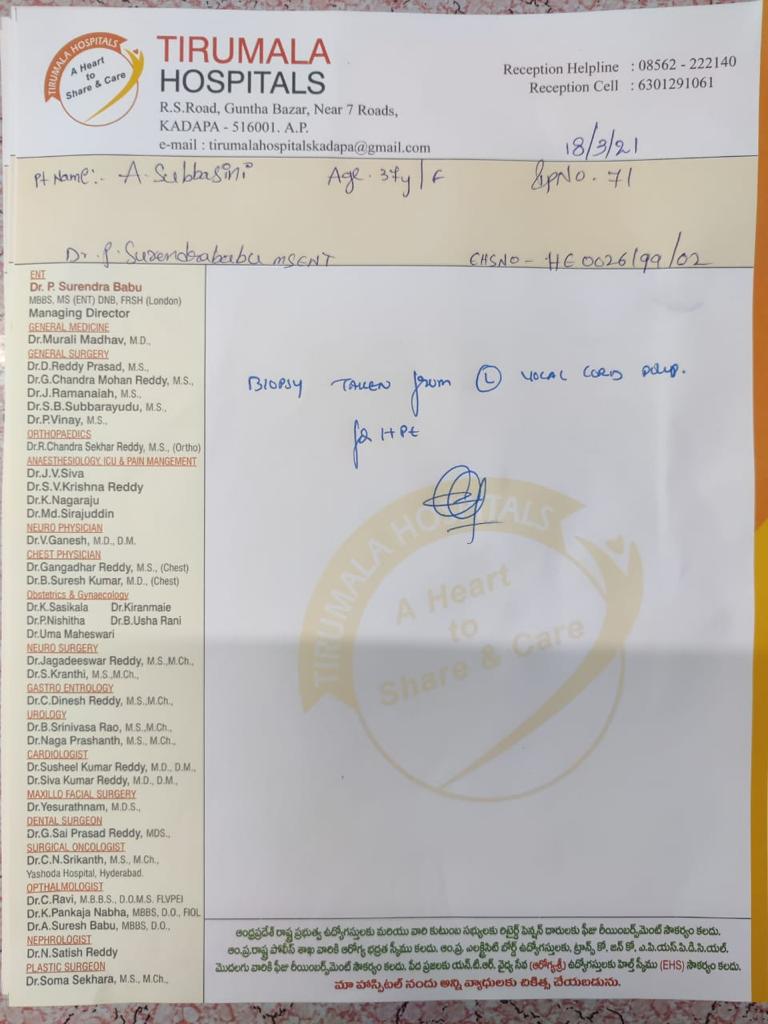 TIRUMALA HOSPITALS
A Heart
to
Share & Care
TIRUMALA
HOSPITALS
R.S.Road, Guntha Bazar, Near 7 Roads,
KADAPA - 516001. A.P.
e-mail : tirumalahospitalskadapa@gmail.com
Reception Helpline : 08562 - 222140
Reception Cell : 6301291061
18/3/21
Pt Name:- A. Subbasini Age. 37y/F IpNo. 71
Dr. P. Surendrababu MSENT EHSNO - HE 0026/99/02
ENT
Dr. P. Surendra Babu
MBBS, MS (ENT) DNB, FRSH (London)
Managing Director
GENERAL MEDICINE
Dr.Murali Madhav, M.D.,
GENERAL SURGERY
Dr.D.Reddy Prasad, M.S.,
Dr.G.Chandra Mohan Reddy, M.S.,
Dr.J.Ramanaiah, M.S.,
Dr.S.B.Subbarayudu, M.S.,
Dr.P.Vinay, M.S.,
ORTHOPAEDICS
Dr.R.Chandra Sekhar Reddy, M.S., (Ortho)
ANAESTHESIOLOGY, ICU & PAIN MANGEMENT
Dr.J.V.Siva
Dr.S.V.Krishna Reddy
Dr.K.Nagaraju
Dr.Md.Sirajuddin
NEURO PHYSICIAN
Dr.V.Ganesh, M.D., D.M.
CHEST PHYSICIAN
Dr.Gangadhar Reddy, M.S., (Chest)
Dr.B.Suresh Kumar, M.D., (Chest)
Obstetrics & Gynaecology
Dr.K.Sasikala Dr.Kiranmaie
Dr.P.Nishitha Dr.B.Usha Rani
Dr.Uma Maheswari
NEURO SURGERY
Dr.Jagadeeswar Reddy, M.S.,M.Ch.,
Dr.S.Kranthi, M.S.,M.Ch.,
GASTRO ENTROLOGY
Dr.C.Dinesh Reddy, M.S.,M.Ch.,
UROLOGY
Dr.B.Srinivasa Rao, M.S.,M.Ch.,
Dr.Naga Prashanth, M.S., M.Ch.,
CARDIOLOGIST
Dr.Susheel Kumar Reddy, M.D., D.M.,
Dr.Siva Kumar Reddy, M.D., D.M.,
MAXILLO FACIAL SURGERY
Dr.Yesurathnam, M.D.S.,
DENTAL SURGEON
Dr.G.Sai Prasad Reddy, MDS.,
SURGICAL ONCOLOGIST
Dr.C.N.Srikanth, M.S., M.Ch.,
Yashoda Hospital, Hyderabad.
OPTHALMOLOGIST
Dr.C.Ravi, M.B.B.S., D.O.M.S. FLVPEI
Dr.K.Pankaja Nabha, MBBS, D.O., FIOL
Dr.A.Suresh Babu, MBBS, D.O.,
NEPHROLOGIST
Dr.N.Satish Reddy
PLASTIC SURGEON
Dr.Soma Sekhara, M.S., M.Ch.,
BIOPSY TAKEN from (L) VOCAL CORD polyp.
for HPE
TIRUMALA HOSPITALS
A Heart
to
Share & Care
ఆంధ్రప్రదేశ్ రాష్ట్ర ప్రభుత్వ ఉద్యోగస్తులకు మరియు వారి కుటుంబ సభ్యులకు రిటైర్డ్ పెన్షన్ దారులకు ఫీజు రీయింబర్స్‌మెంట్ సౌకర్యం కలదు.
ఆం.ప్ర.రాష్ట్ర పోలీస్ శాఖ వారికి ఆరోగ్య భద్రత స్కీము కలదు. ఆం.ప్ర. ఎలక్ట్రిసిటి బోర్డ్ ఉద్యోగస్తులకు, ట్రాన్స్ కో, జన్ కో, ఎ.పి.యస్.పి.డి.సి.యల్.
మొదలగు వారికి ఫీజు రీయింబర్స్‌మెంట్ సౌకర్యం కలదు. పేద ప్రజలకు యన్.టి.ఆర్. వైద్య సేవ (ఆరోగ్యశ్రీ) ఉద్యోగస్తులకు హెల్త్ స్కీము (EHS) సౌకర్యం కలదు.
మా హాస్పిటల్ నందు అన్ని వ్యాధులకు చికిత్స చేయబడును.